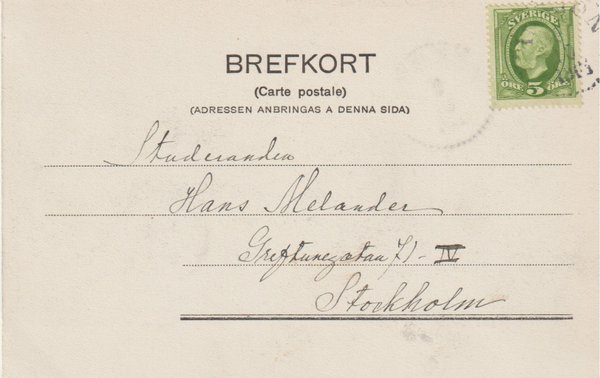 SVERIGE
ÖRE 5 ÖRE
BREFKORT
(Carte postale)
(ADRESSEN ANBRINGAS A DENNA SIDA)
Studeranden
Hans Melander
71 IV
Stockholm